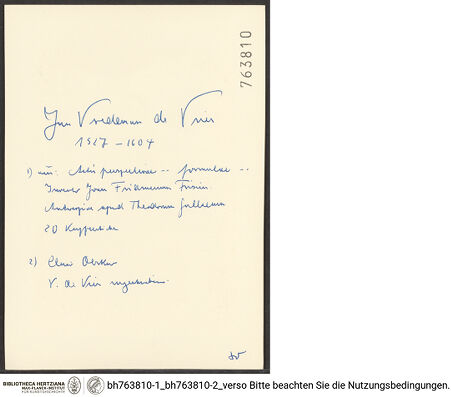 763810
Jan Vredeman de Vries
1527 – 1604
1) Artis perspectivae -- formulae --
Inventor Joan Fridmannus Frisius
Antverpiae apud Theodorum Gallaeum
20 Kupfer
2)
V. de Vries zugeschrieben.
BIBLIOTHECA HERTZIANA
MAX-PLANCK-INSTITUT
FÜR KUNSTGESCHICHTE
bh763810-1_bh763810-2_verso Bitte beachten Sie die Nutzungsbedingungen.